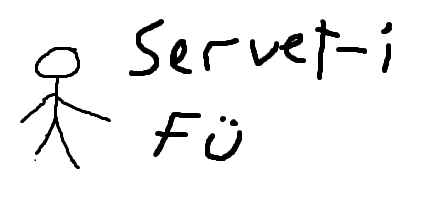 Servet-i
Fü